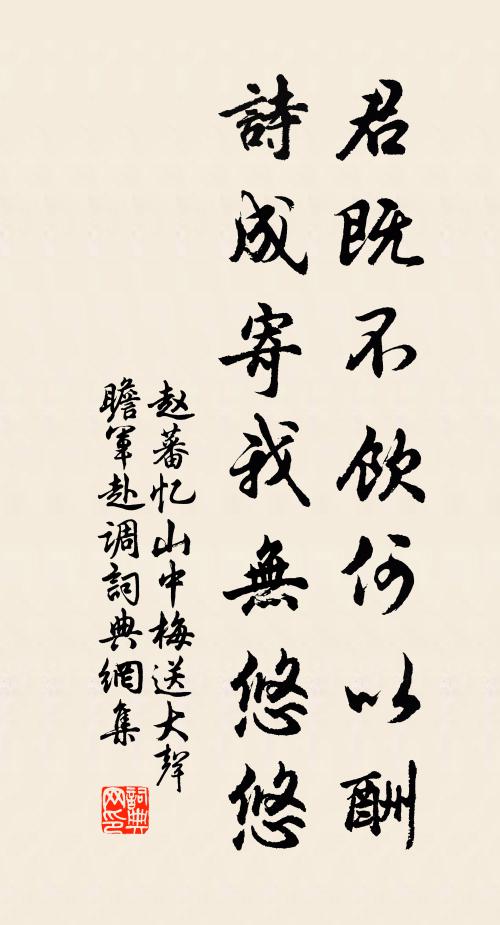 君既不飲何以酬
詩成寄我無悠悠
赵蕃忆山中梅送大聲
瞻軍赴调詞典網集
詞典
网印